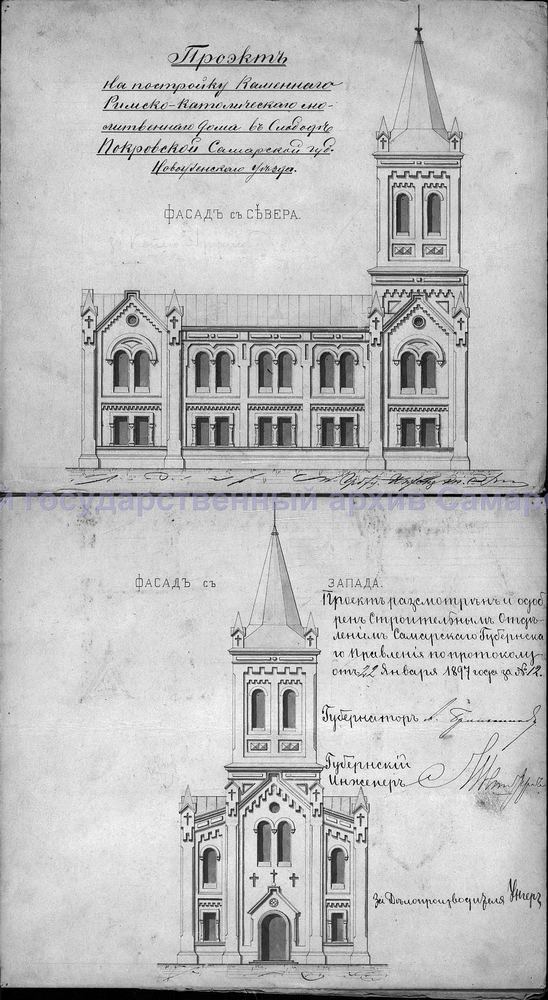 Проэктъ
на постройку Каменнаго
Римско-католическаго мо-
литвеннаго дома въ Слободѣ
Покровской Самарской губ.
Новоузенскаго уѣзда.
ФАСАДЪ съ СѢВЕРА.
й государственный архив Самар
ФАСАДЪ съ ЗАПАДА.
Проектъ разсмотрѣнъ и одоб
ренъ Строительнымъ Отдѣ-
леніемъ Самарскаго Губернска
го Правленія по протоколу
отъ 22 Января 1897 года за №12.
Губернаторъ
Губернскій
Инженеръ
За Дѣлопроизводителя Унгеръ